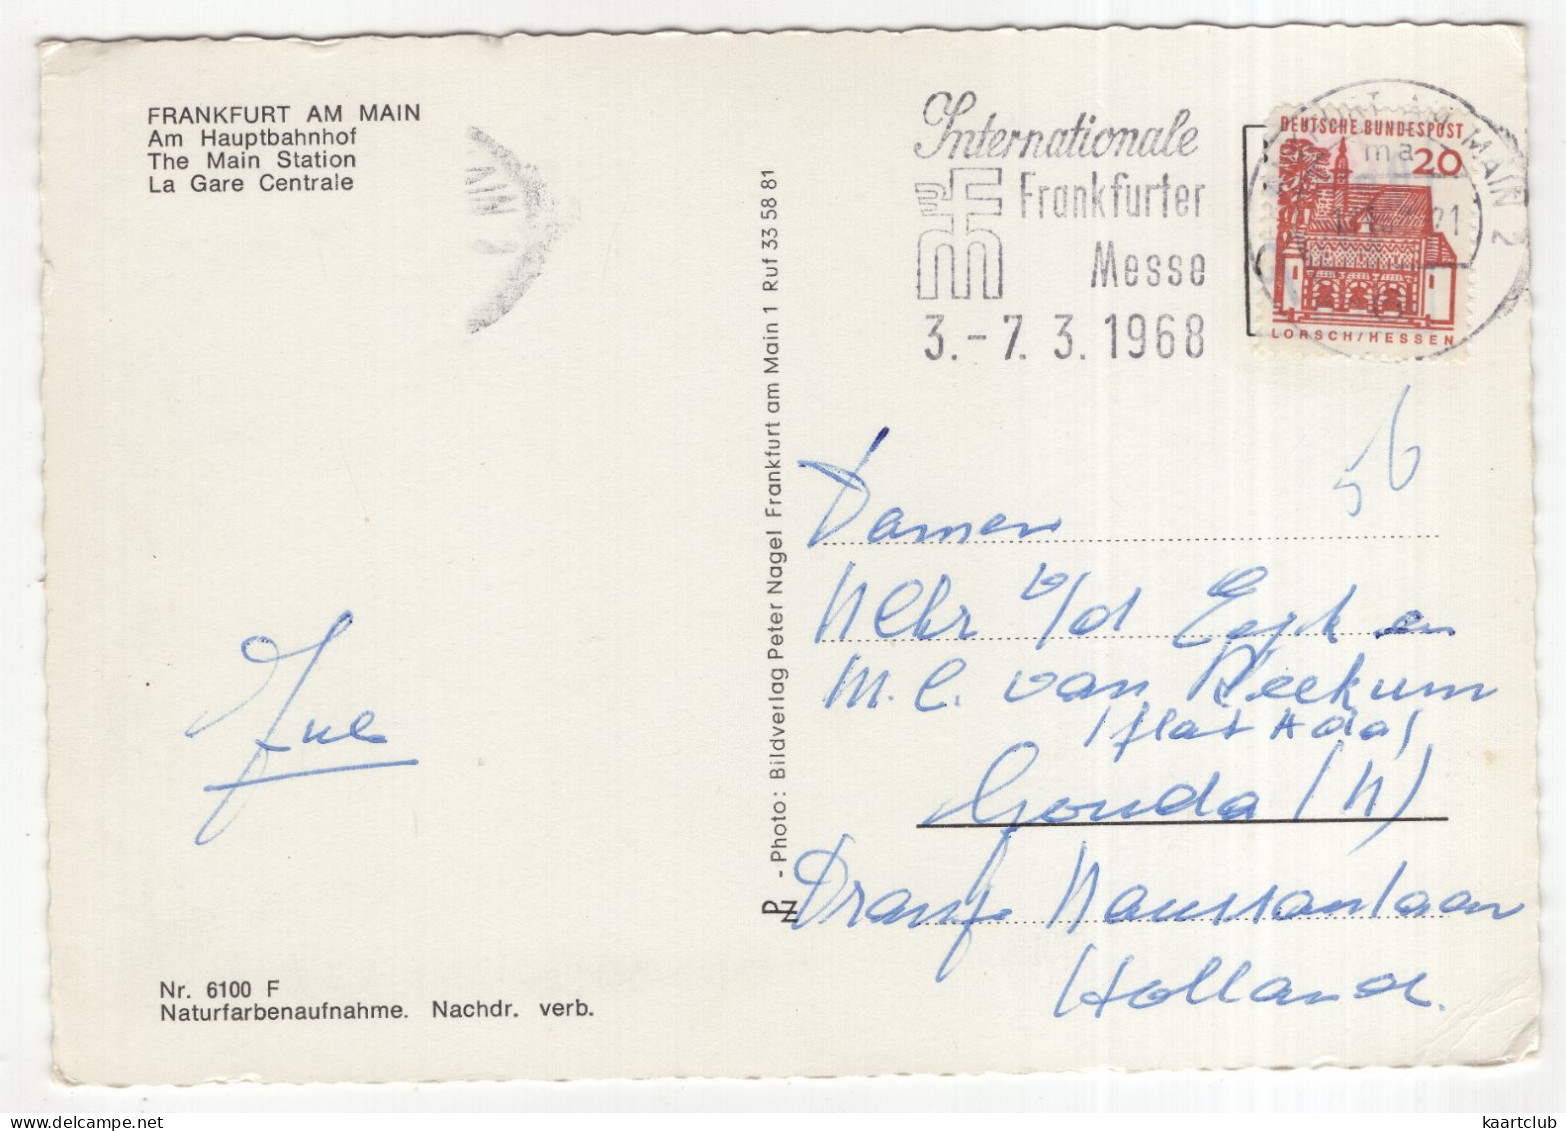 FRANKFURT AM MAIN
Am Hauptbahnhof
The Main Station
La Gare Centrale
AIN 2
Internationale
Frankfurter
Messe
3.-7.3.1968
DEUTSCHE BUNDESPOST
20
LORSCH/HESSEN
MAIN 2
ma
21
- Photo: Bildverlag Peter Nagel Frankfurt am Main 1 Ruf 33 58 81
PN
56
Damen
v/d Eyk en
M.C. van Reekum
(flat Ada)
Gouda (N)
Holland.
Nr. 6100 F
Naturfarbenaufnahme. Nachdr. verb.
kaartclub